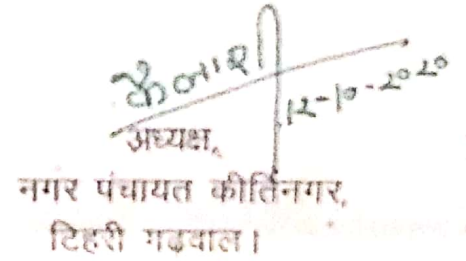 कैलाश
12-10-2020
अध्यक्ष,
नगर पंचायत कीर्तिनगर,
टिहरी गढ़वाल।